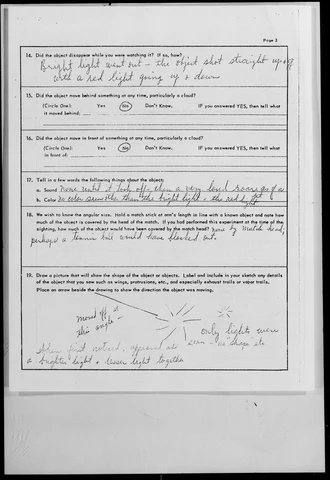 Page 3
14. Did the object disappear while you were watching it? If so, how?
Bright light went out - the object shot straight up & off
with a red light going up & down
15. Did the object move behind something at any time, particularly a cloud?
(Circle One): Yes No Don't Know. If you answered YES, then tell what
it moved behind:
16. Did the object move in front of something at any time, particularly a cloud?
(Circle One): Yes No Don't Know. If you answered YES, then tell what
in front of:
17. Tell in a few words the following things about the object:
a. Sound none until it took off - then a very loud roaring of
b. Color no color seen other than the bright light & the red light
18. We wish to know the angular size. Hold a match stick at arm's length in line with a known object and note how
much of the object is covered by the head of the match. If you had performed this experiment at the time of the
sighting, how much of the object would have been covered by the match head? none by match head,
perhaps a tennis ball would have blocked out.
19. Draw a picture that will show the shape of the object or objects. Label and include in your sketch any details
of the object that you saw such as wings, protrusions, etc., and especially exhaust trails or vapor trails.
Place an arrow beside the drawing to show the direction the object was moving.
moved off at
this angle -
only lights were
seen - no "shape" etc
When first noticed, appeared as
a brighter light & lesser light together